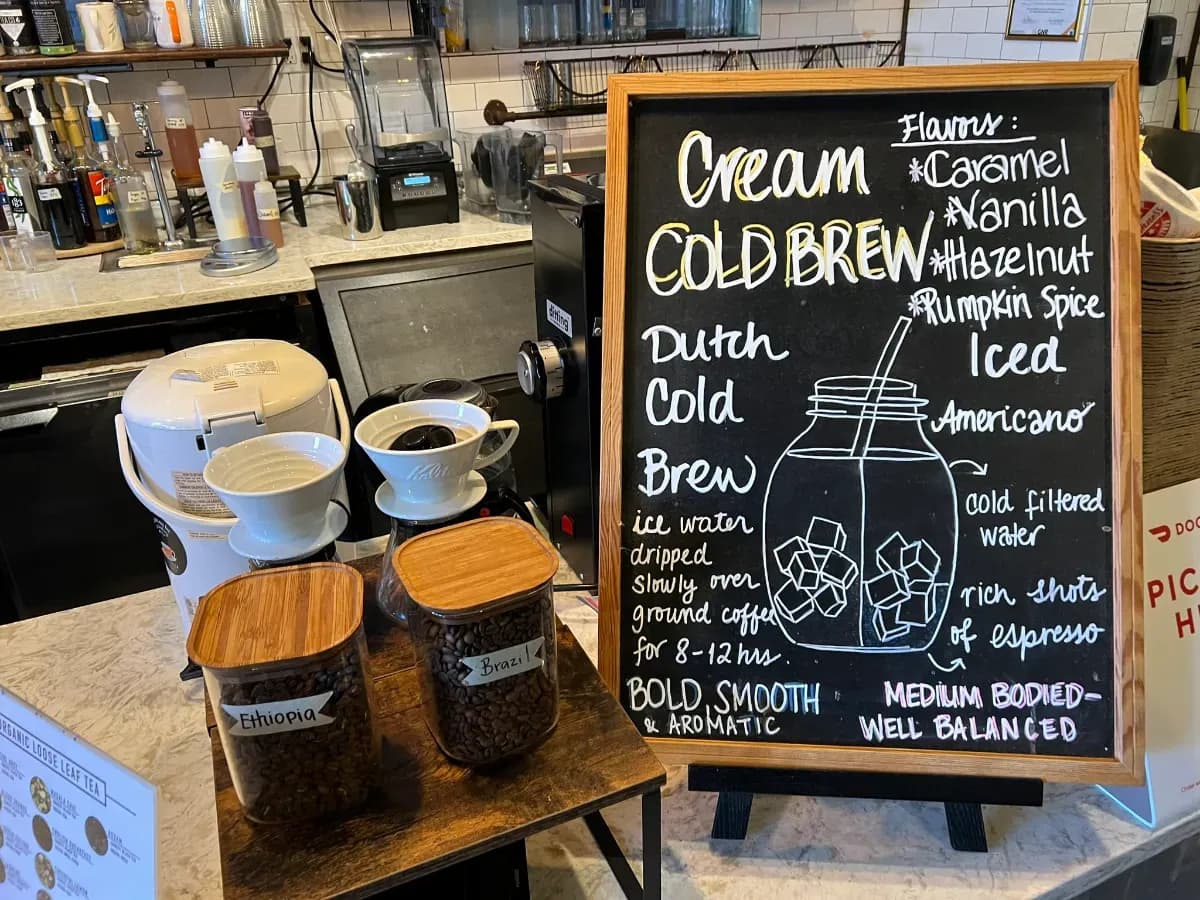 Cream
COLD BREW
Flavors:
*Caramel
*Vanilla
*Hazelnut
*Pumpkin Spice
Dutch
Cold
Brew
ice water
dripped
slowly over
ground coffee
for 8-12 hrs.
BOLD, SMOOTH
& AROMATIC
Iced
Americano
cold filtered
water
rich shots
of espresso
MEDIUM BODIED-
WELL BALANCED
ditting
Ethiopia
Brazil
ORGANIC LOOSE LEAF TEA